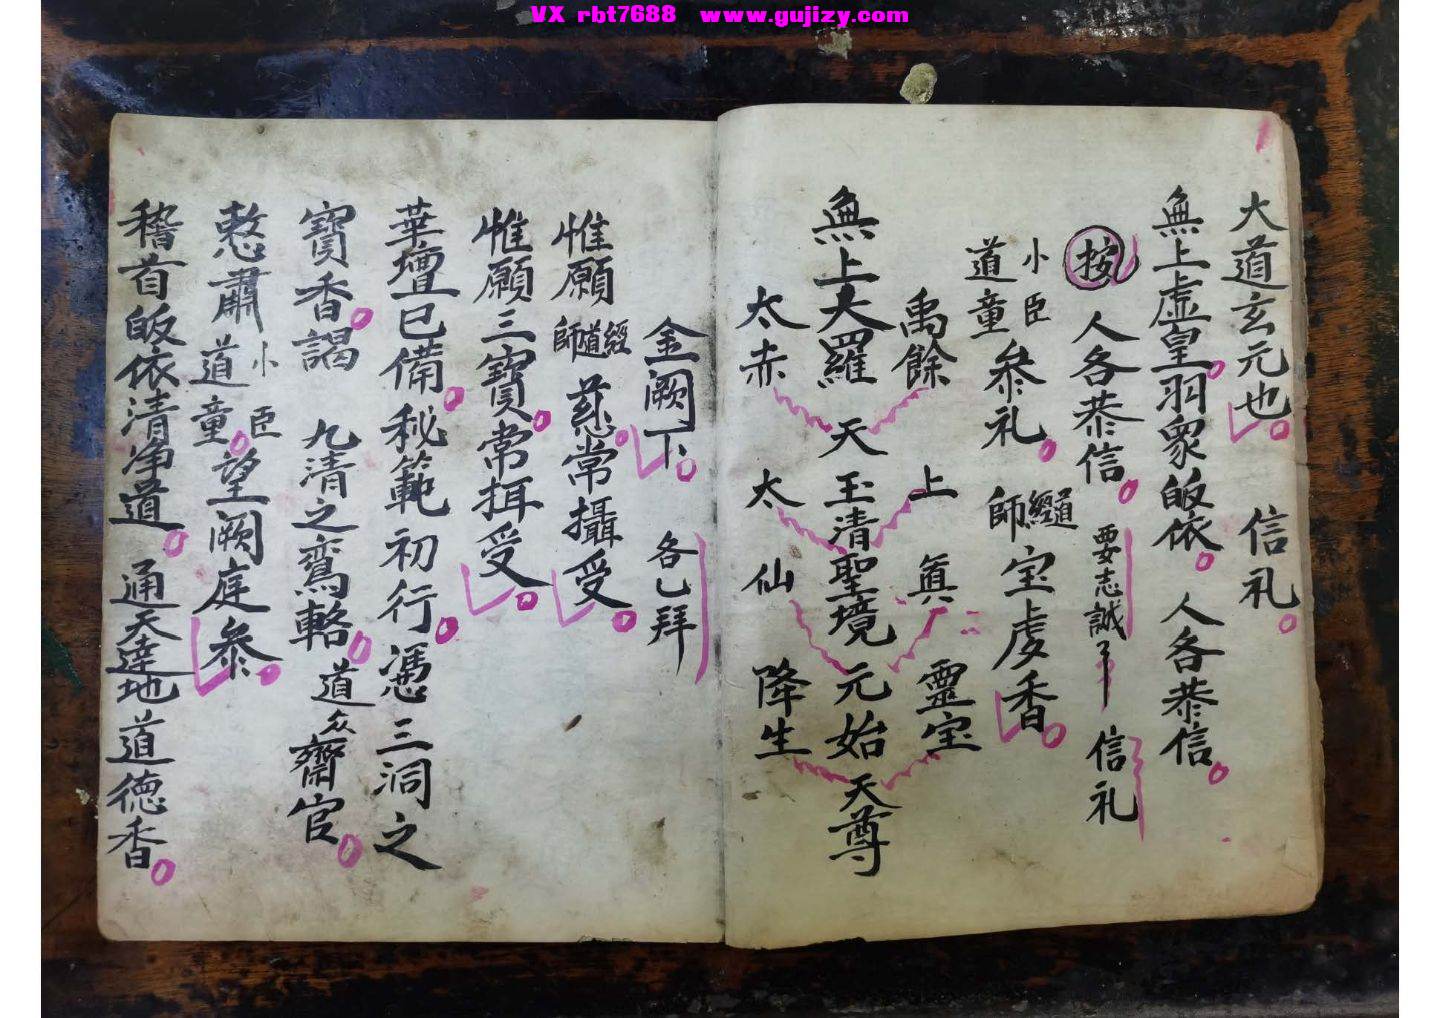 VX rbt7688 www.gujizy.com
大道玄元也 信礼
無上虛皇羽眾皈依 人各恭信
按 人各恭信 要志誠 信礼
小臣
道童 叅礼 道經師 宝虔香
禹餘 上 眞 靈宝
無上大羅天玉清聖境元始天尊
太赤 太 仙 降生
金阙下 各乙拜
惟願 經道師 慈常攝受
惟願三寶常捛受
華壇已備秘範初行憑三洞之
寶香謁 九清之鸞輅 道众齋官
慗肅 小臣 道童 望阙庭叅
稽首皈依清净道 通天達地道德香